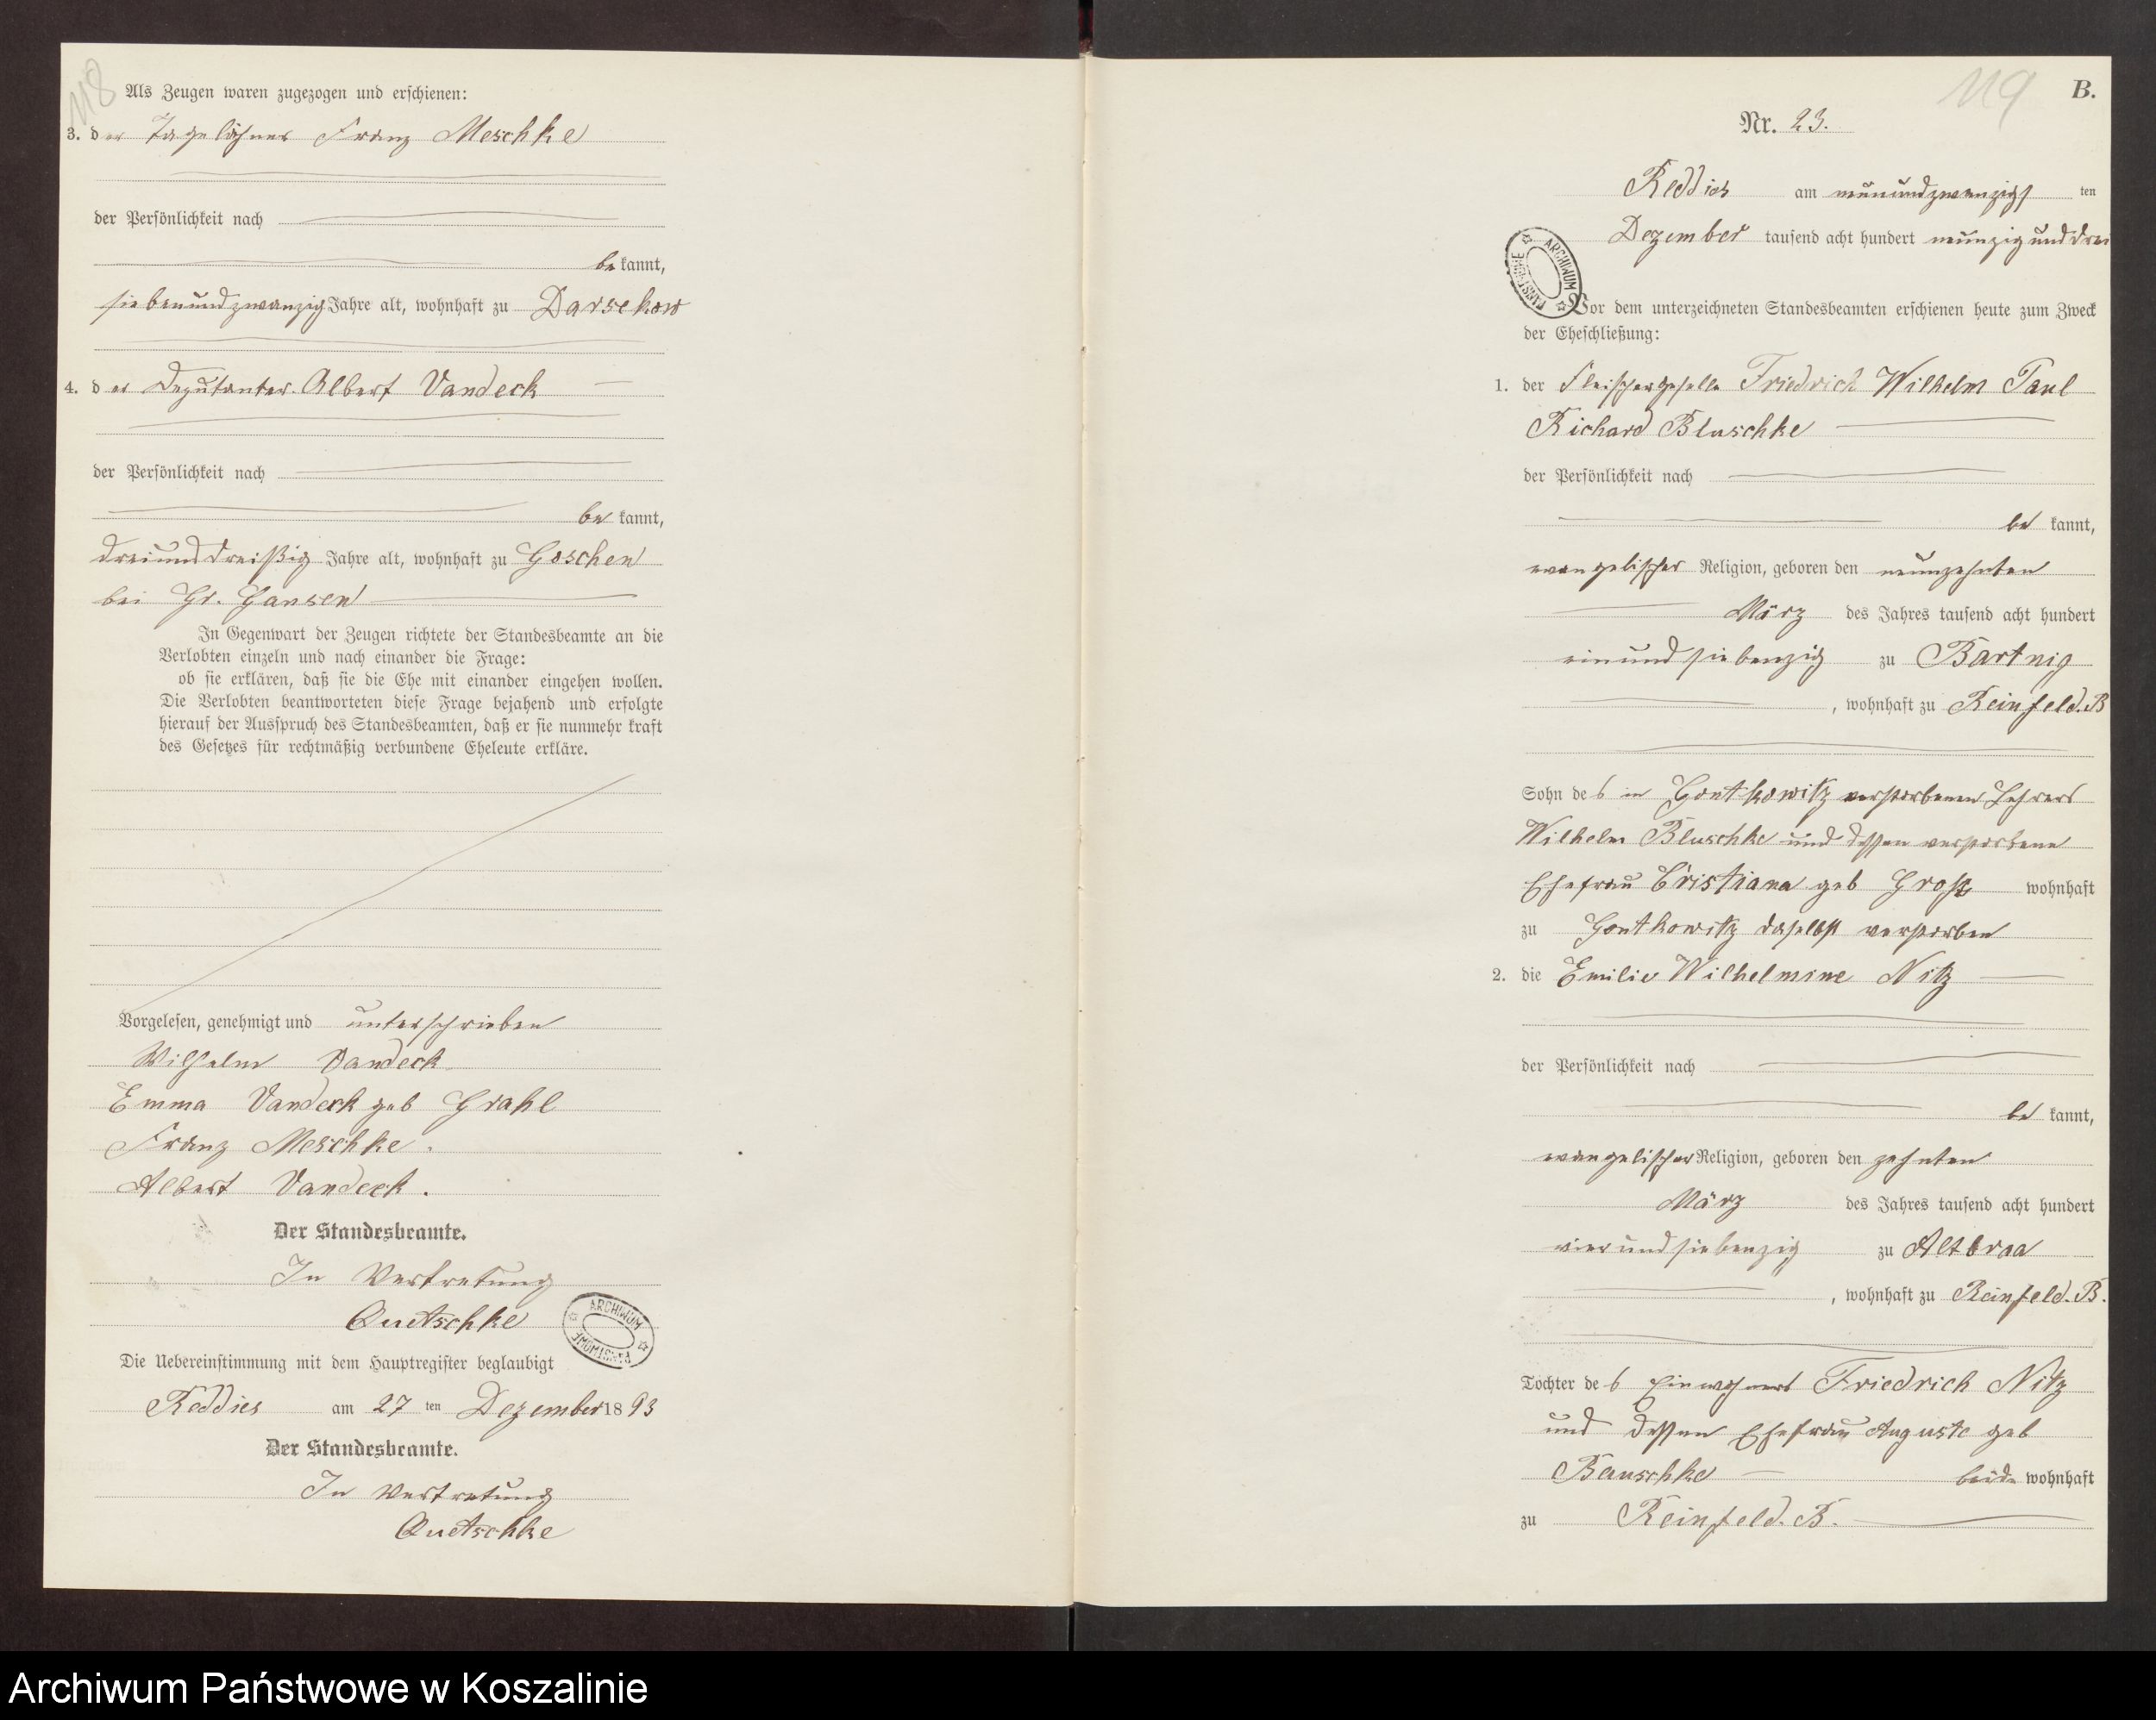 118
Als Zeugen waren zugezogen und erschienen:
3. der Tagelöhner Franz Meschke
der Persönlichkeit nach
bekannt,
siebenundzwanzig Jahre alt, wohnhaft zu Darsekow
4. der Deputanter Albert Vandeck
der Persönlichkeit nach
be kannt,
dreiunddreißig Jahre alt, wohnhaft zu Goschen
bei Gr. Gansen
In Gegenwart der Zeugen richtete der Standesbeamte an die
Verlobten einzeln und nach einander die Frage:
ob sie erklären, daß sie die Ehe mit einander eingehen wollen.
Die Verlobten beantworteten diese Frage bejahend und erfolgte
hierauf der Ausspruch des Standesbeamten, daß er sie nunmehr kraft
des Gesetzes für rechtmäßig verbundene Eheleute erkläre.
Vorgelesen, genehmigt und unterschrieben
Wilhelm Vandeck
Emma Vandeck geb Grahl
Franz Meschke.
Albert Vandeck.
Der Standesbeamte.
In Vertretung
Quetschke
ARCHIWUM PAŃSTWOWE
Die Uebereinstimmung mit dem Hauptregister beglaubigt
Reddies am 27 ten Dezember 1893
Der Standesbeamte.
In Vertretung
Quetschke
119
B.
Nr. 23.
Reddies am neunundzwanzigsten
Dezember tausend acht hundert neunzig und drei
ARCHIWUM PAŃSTWOWE
Vor dem unterzeichneten Standesbeamten erschienen heute zum Zweck
der Eheschließung:
1. der Fleischergeselle Friedrich Wilhelm Paul
Richard Bluschke
der Persönlichkeit nach
be kannt,
evangelischer Religion, geboren den neunzehnten
März des Jahres tausend acht hundert
einundsiebenzig zu Bartnig
, wohnhaft zu Reinfeld. B
Sohn des in Gontkowitz verstorbenen Lehrers
Wilhelm Bluschke und dessen verstorbene
Ehefrau Cristiana geb Groß wohnhaft
zu Gontkowitz daselbst verstorben
2. die Emilie Wilhelmine Nitz
der Persönlichkeit nach
be kannt,
evangelischer Religion, geboren den zehnten
März des Jahres tausend acht hundert
vierundsiebenzig zu Altbraa
, wohnhaft zu Reinfeld. B.
Tochter des Einwohners Friedrich Nitz
und dessen Ehefrau Auguste geb
Bauschke beide wohnhaft
zu Reinfeld. B.
Archiwum Państwowe w Koszalinie